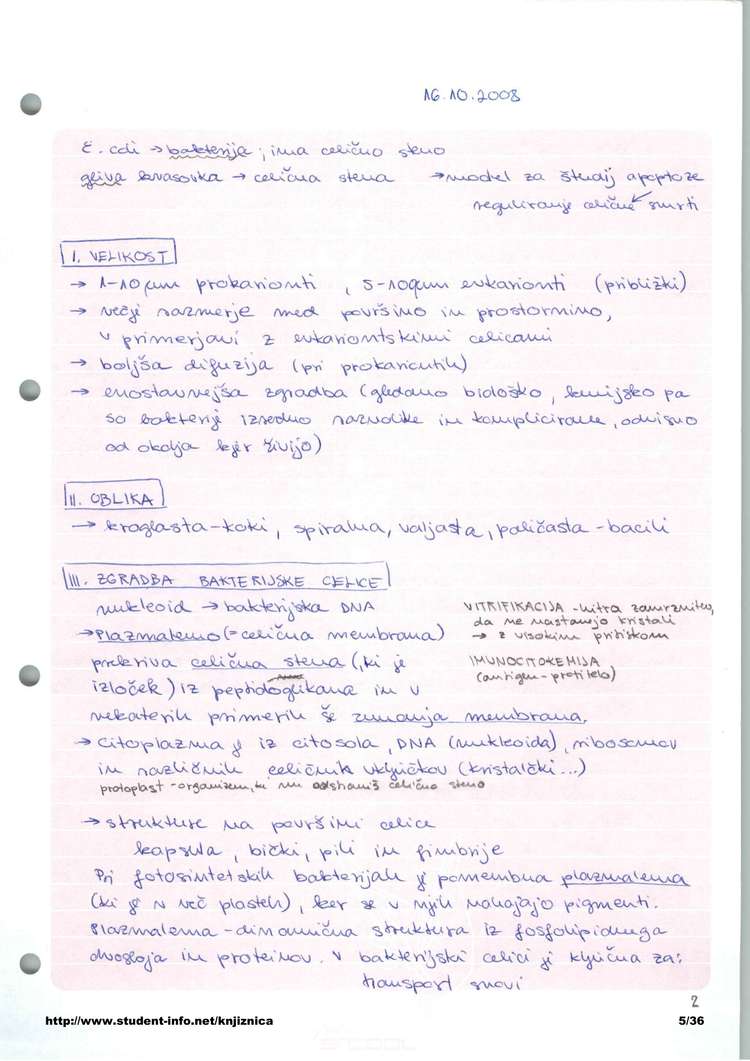 16.10.2008
E. coli → bakterija; ima celično steno
gliva kvasovka → celična stena → model za študij apoptoze
reguliranje celične smrti
I. VELIKOST
→ 1-10 µm prokarionti, 5-100 µm evkarionti (približki)
→ večji razmerje med površino in prostornino,
v primerjavi z evkariontskimi celicami
→ boljša difuzija (pri prokariontih)
→ enostavnejša zgradba (gledano biološko, kemijsko pa
so bakterije izredno raznolike in komplicirane, odvisno
od okolja kjer živijo)
II. OBLIKA
→ kroglasta-koki, spiralna, valjasta, paličasta-bacili
III. ZGRADBA BAKTERIJSKE CELICE
nukleoid → bakterijska DNA
VITRIFIKACIJA - hitra zamrznitev,
da ne nastanejo kristali
→ z visokim pritiskom
→ Plazmalemo (= celična membrana)
prekriva celična stena (, ki je
IMUNOCITOKEMIJA
(antigen - protitelo)
izloček) iz peptidoglikana in v
nekaterih primerih še zunanja membrana.
→ citoplazma je iz citosola, DNA (nukleoida), ribosomov
in različnih celičnih vključkov (kristalčki...)
protoplast - organizem, ki mu odstraniš celično steno
→ strukture na površini celice
kapsula, bički, pili in fimbrije
Pri fotosintetskih bakterijah je pomembna plazmalema
(ki je v več plasteh), ker se v njih nahajajo pigmenti.
Plazmalema - dinamična struktura iz fosfolipidnega
dvosloja in proteinov. V bakterijski celici je ključna za:
transport snovi
2
http://www.student-info.net/knjiznica 5/36